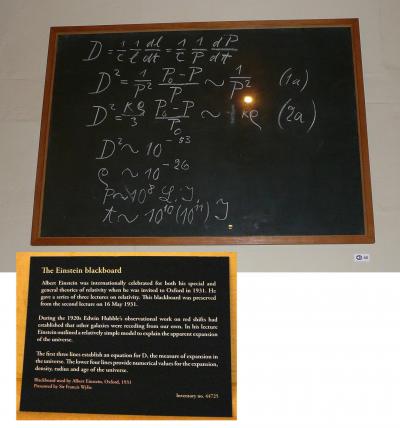 D = 1/c 1/l dl/dt = 1/c 1/P dP/dt
D² = 1/P² (P₀ − P)/P ~ 1/P² (1a)
D² = κρ/3 (P₀ − P)/P₀ ~ κρ (2a)
D² ~ 10⁻⁵³
ρ ~ 10⁻²⁶
P ~ 10⁸ L. J.
t ~ 10¹⁰ (10¹¹) J
The Einstein blackboard
Albert Einstein was internationally celebrated for both his special and
general theories of relativity when he was invited to Oxford in 1931. He
gave a series of three lectures on relativity. This blackboard was preserved
from the second lecture on 16 May 1931.
During the 1920s Edwin Hubble's observational work on red shifts had
established that other galaxies were receding from our own. In his lecture
Einstein outlined a relatively simple model to explain the apparent expansion
of the universe.
The first three lines establish an equation for D, the measure of expansion in
the universe. The lower four lines provide numerical values for the expansion,
density, radius and age of the universe.
Blackboard used by Albert Einstein, Oxford, 1931
Presented by Sir Francis Wylie
Inventory no. 44725